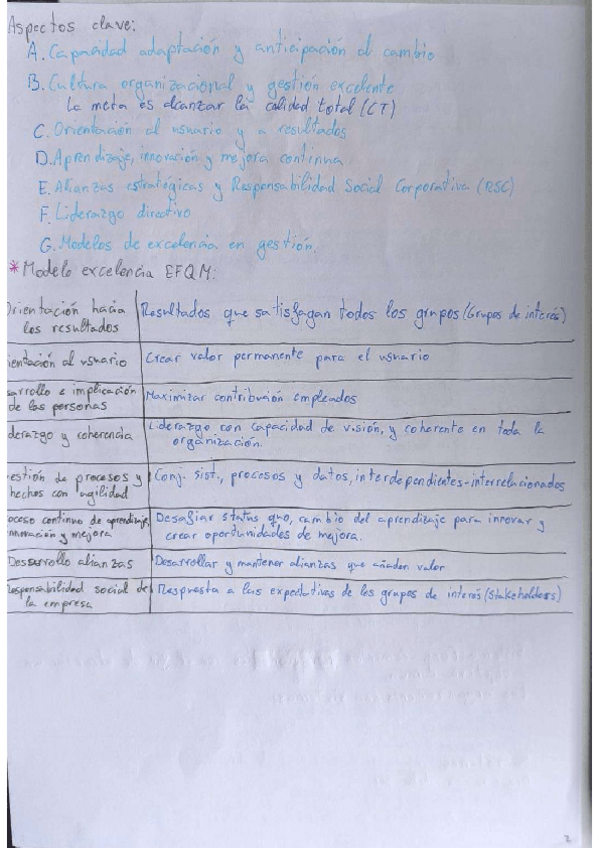 Aspectos clave:
A. Capacidad adaptación y anticipación al cambio
B. Cultura organizacional y gestión excelente
La meta es alcanzar la calidad total (CT)
C. Orientación al usuario y a resultados
D. Aprendizaje, innovación y mejora continua
E. Alianzas estratégicas y Responsabilidad Social Corporativa (RSC)
F. Liderazgo directivo
G. Modelos de excelencia en gestión.
* Modelo excelencia EFQM:
Orientación hacia los resultados
Resultados que satisfagan todos los grupos (Grupos de interés)
ientación al usuario
Crear valor permanente para el usuario
sarrollo e implicación
de las personas
Maximizar contribución empleados
derazgo y coherencia
Liderazgo con capacidad de visión, y coherente en toda la
organización.
estión de procesos y
hechos con agilidad
Conj. sist., procesos y datos, interdependientes-interrelacionados
oceso continuo de aprendizaje,
innovación y mejora
Desafiar status quo, cambio del aprendizaje para innovar y
crear oportunidades de mejora.
Desarrollo alianzas
Desarrollar y mantener alianzas que añaden valor
Responsabilidad social de
la empresa
Respuesta a las expectativas de los grupos de interés (Stakeholders)
2